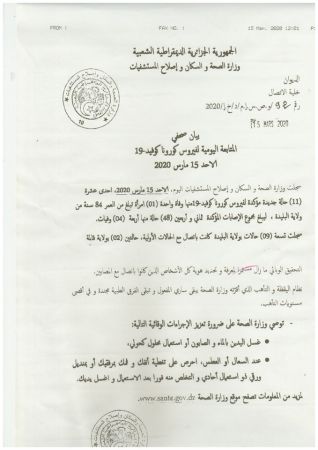 FROM : FAX NO. : 15 Mar. 2020 12:01
الجمهورية الجزائرية الديمقراطية الشعبية
وزارة الصحة و السكان و إصلاح المستشفيات
الديوان
خلية الاتصال
15 MARS 2020
بيان صحفي
المتابعة اليومية لفيروس كورونا كوفيد-19
الاحد 15 مارس 2020
سجلت وزارة الصحة و السكان و إصلاح المستشفيات اليوم، الاحد 15 مارس 2020، احدى عشرة
(11) حالة جديدة مؤكدة لفيروس كورونا كوفيد-19 منها وفاة واحدة (01) امرأة تبلغ من العمر 84 سنة من
ولاية البليدة، ليبلغ مجموع الإصابات المؤكدة ثماني و أربعين (48) حالة منها أربعة (04) وفيات.
سجلت تسعة (09) حالات بولاية البليدة كانت باتصال مع الحالات الأولية، حالتين (02) بولاية
التحقيق الوبائي ما زال مستمرا لمعرفة و تحديد هوية كل الأشخاص الذين كانوا باتصال مع المصابين.
نظام اليقظة و التأهب الذي أقرته وزارة الصحة يبقى ساري المفعول و تبقى الفرق الطبية مجندة و في أقصى
مستويات التأهب.
- توصي وزارة الصحة على ضرورة تعزيز الإجراءات الوقائية التالية:
غسل اليدين بالماء و الصابون أو استعمال محلول كحولي،
عند السعال أو العطس، احرص على تغطية أنفك و فمك بمرفقيك أو بمنديل
ورقي ذو استعمال أحادي و التخلص منه فورا بعد الاستعمال و اغسل يديك.
لمزيد من المعلومات تصفح موقع وزارة الصحة www.sante.gov.dz